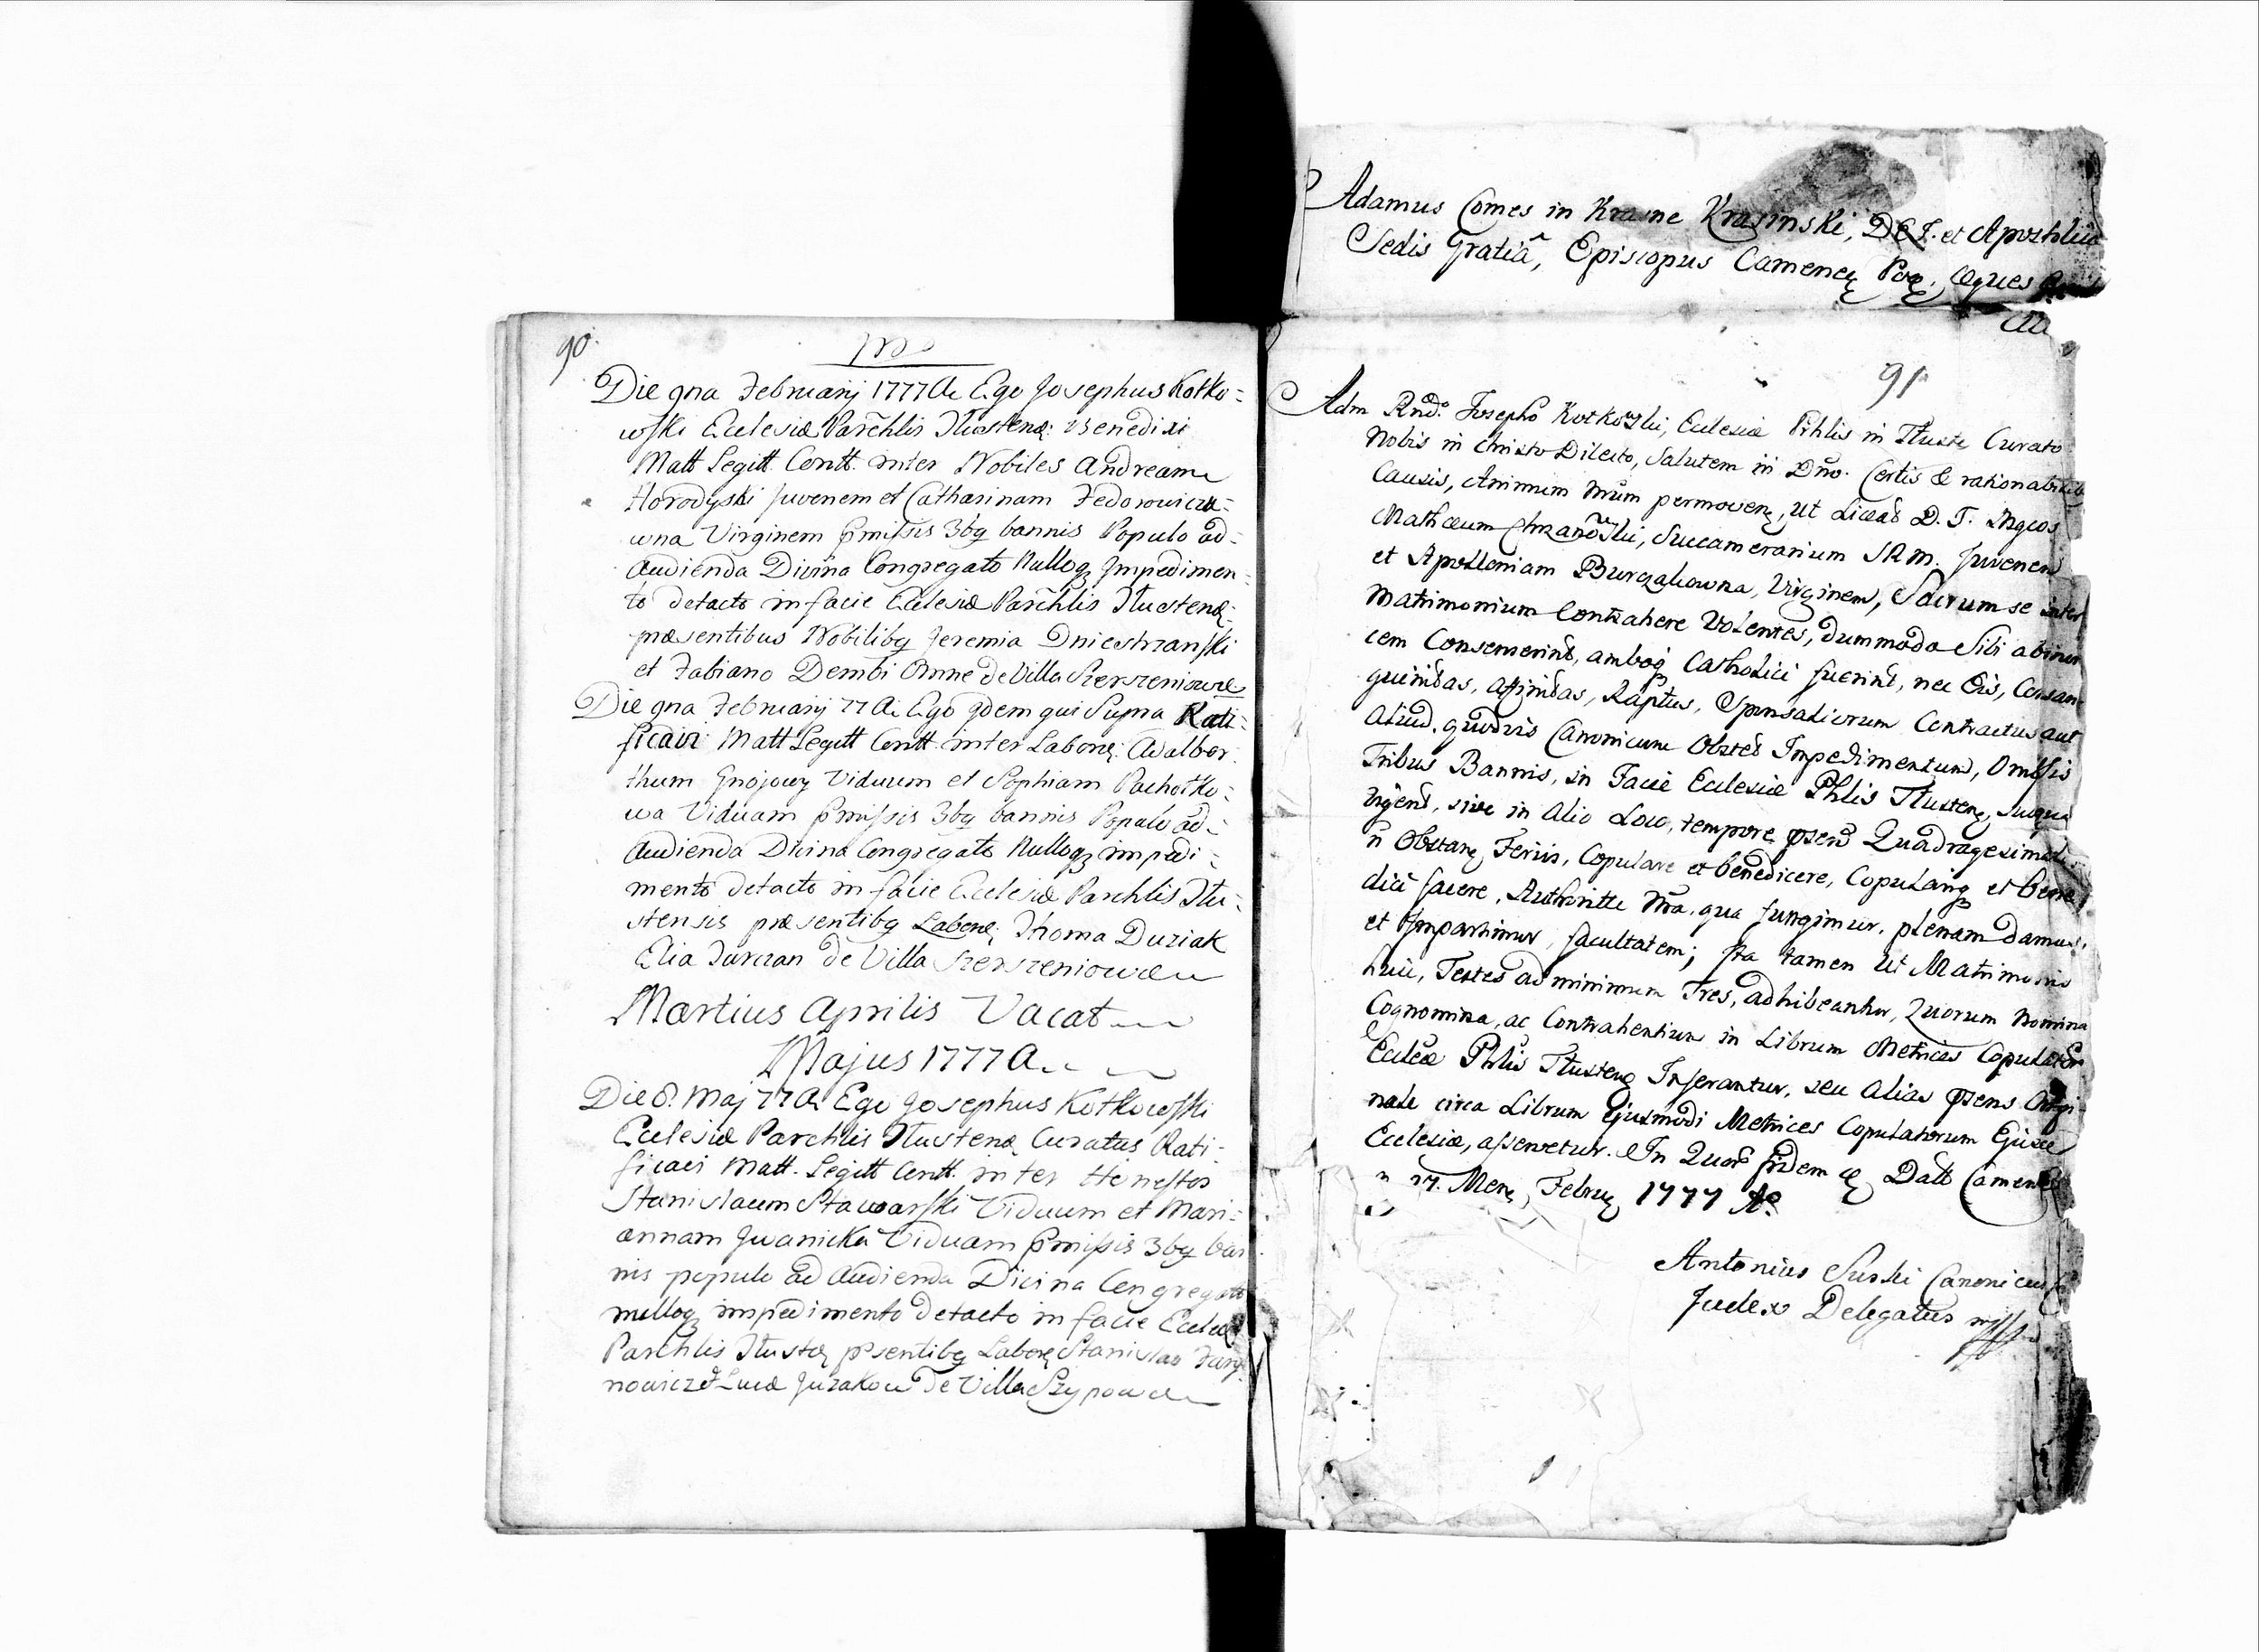 90.
Die 9na Februarij 1777 A. Ego Josephus Kotko=
wski Ecclesiæ Parchlis Tłustenę: Benedixi
Matt Legitt. Contt. inter Nobiles Andream
Horodyski Juvenem et Catharinam Fedorowicza=
wna Virginem Pmissis 3bg bannis Populo ad=
Audienda Divina Congregato Nulloqz Impedimen=
to detecto in facie Ecclesiæ Parchlis Tłustenę:
præsentibus Nobilibg Jeremia Dniestrzanski
et Fabiano Dembi Omne de Villa Szerszeniowce
Die 9na Februarij 77 A. Ego qdem qui Supra Rati=
ficavi Matt Legitt Contt. inter Laborię: Adalber
thum Gnojowy Viduum et Sophiam Pachotko=
wa Viduam Pmissis 3bg bannis Populo ad=
Audienda Divina Congregato Nulloqz impedi=
mento detecto in facie Ecclesiæ Parchlis Tłu=
stensis præsentibg Laborię: Thoma Duziak
Elia Turczan de Villa Szerszeniowce
Martius Aprilis Vacat
Majus 1777 A.
Die 8. Maj 77 A. Ego Josephus Kotkowski
Ecclesiæ Parchlis Tłustenę Curatus Rati=
ficavi Matt. Legitt Contt. inter Honestos
Stanislaum Stawarski Viduum et Mari=
annam Iwanicka Viduam Pmissis 3bg ban
nis populo ad Audienda Divina Congregato
nulloqz impedimento detecto in facie Ecclesiæ
Parchlis Tłustę psentibg Laborę Stanislao
nowicz et Luca Juzakow de Villa Szypowce
Adamus Comes in Krasne Krasinski, DEI. et Apostolicæ
Sedis Gratiâ, Episcopus Camenec Pog, Eques
91
Adm Rndo. Josepho Kotkowski, Ecclesiæ Prhlis in Tłuste Curato
Nobis in Christo Dilecto, Salutem in Dno. Certis & rationabilib
Causis, Animum Nrum permoven, ut Liceat D. T. Mgcos
Mathæum Chrzanowski, Succamerarium SRM. Juvenem
et Apolloniam Burczakowna, Virginem, Sacrum se inter
Matrimonium Contrahere Volentes, dummodo Sibi ab inui
cem Consenserint, amboq Catholici fuerint, nec Eis, Consan
guinitas, Affinitas, Raptus, Sponsaliorum Contractus aut
Aliud, quodvis Canonicum Obstet Impedimentum, Omissis
Tribus Bannis, in Facie Ecclesiæ Phlis Tłusteng,
Urgent, sive in Alio Loco, tempore psend Quadragesimali
n Obstang Feriis, Copulare et benedicere, Copulariq et bene
dici facere, Authoritte Nra. qua fungimur, plenam damus,
et Impartimur, facultatem; Ita tamen Ut Matrimonio
huic, Testes ad minimum Tres, adhibeantur, Quorum Nomina
Cognomina, ac Contrahentium in Librum Metrices Copulator
Eccleæ Phlis Tłusteng Inserantur, seu Alias psens Origi
nale circa Librum Ejusmodi Metrices Copulatorum Ejusce
Ecclesiæ, asservetur. In Quor fidem & Datt Camenec
n 17. Mens Februę 1777 Ao.
Antonius Suski Canonicus
Judex Delegatus